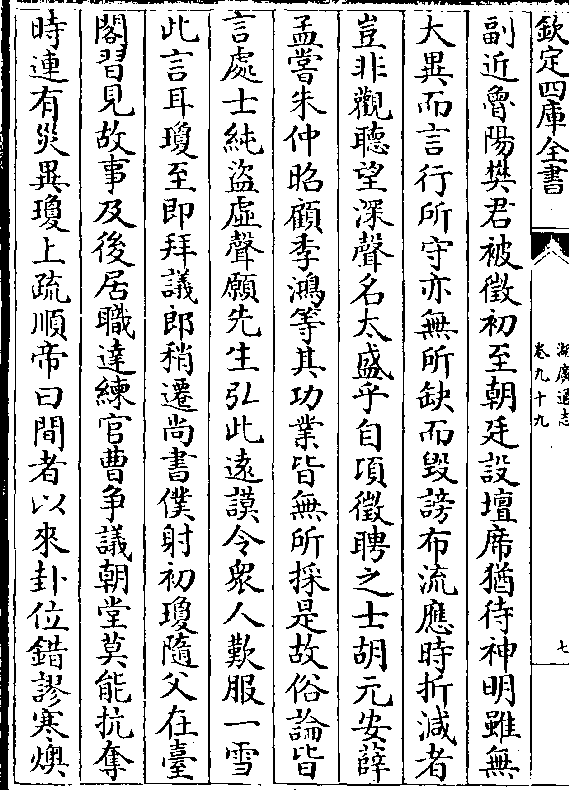 欽定四庫全書
湖廣通志
卷九十九
七
副近魯陽樊君被徵初至朝廷設壇席猶待神明雖無
大異而言行所守亦無所缺而毀謗布流應時折減者
豈非觀聽望深聲名太盛乎自項徵聘之士胡元安薛
孟嘗朱仲昭顧季鴻等其功業皆無所採是故俗論皆
言處士純盜虛聲願先生弘此遠謨令衆人歎服一雪
此言耳瓊至即拜議郎稍遷尚書僕射初瓊隨父在臺
閣習見故事及後居職達練官曹争議朝堂莫能抗奪
時連有災異瓊上疏順帝曰間者以來卦位錯謬寒燠